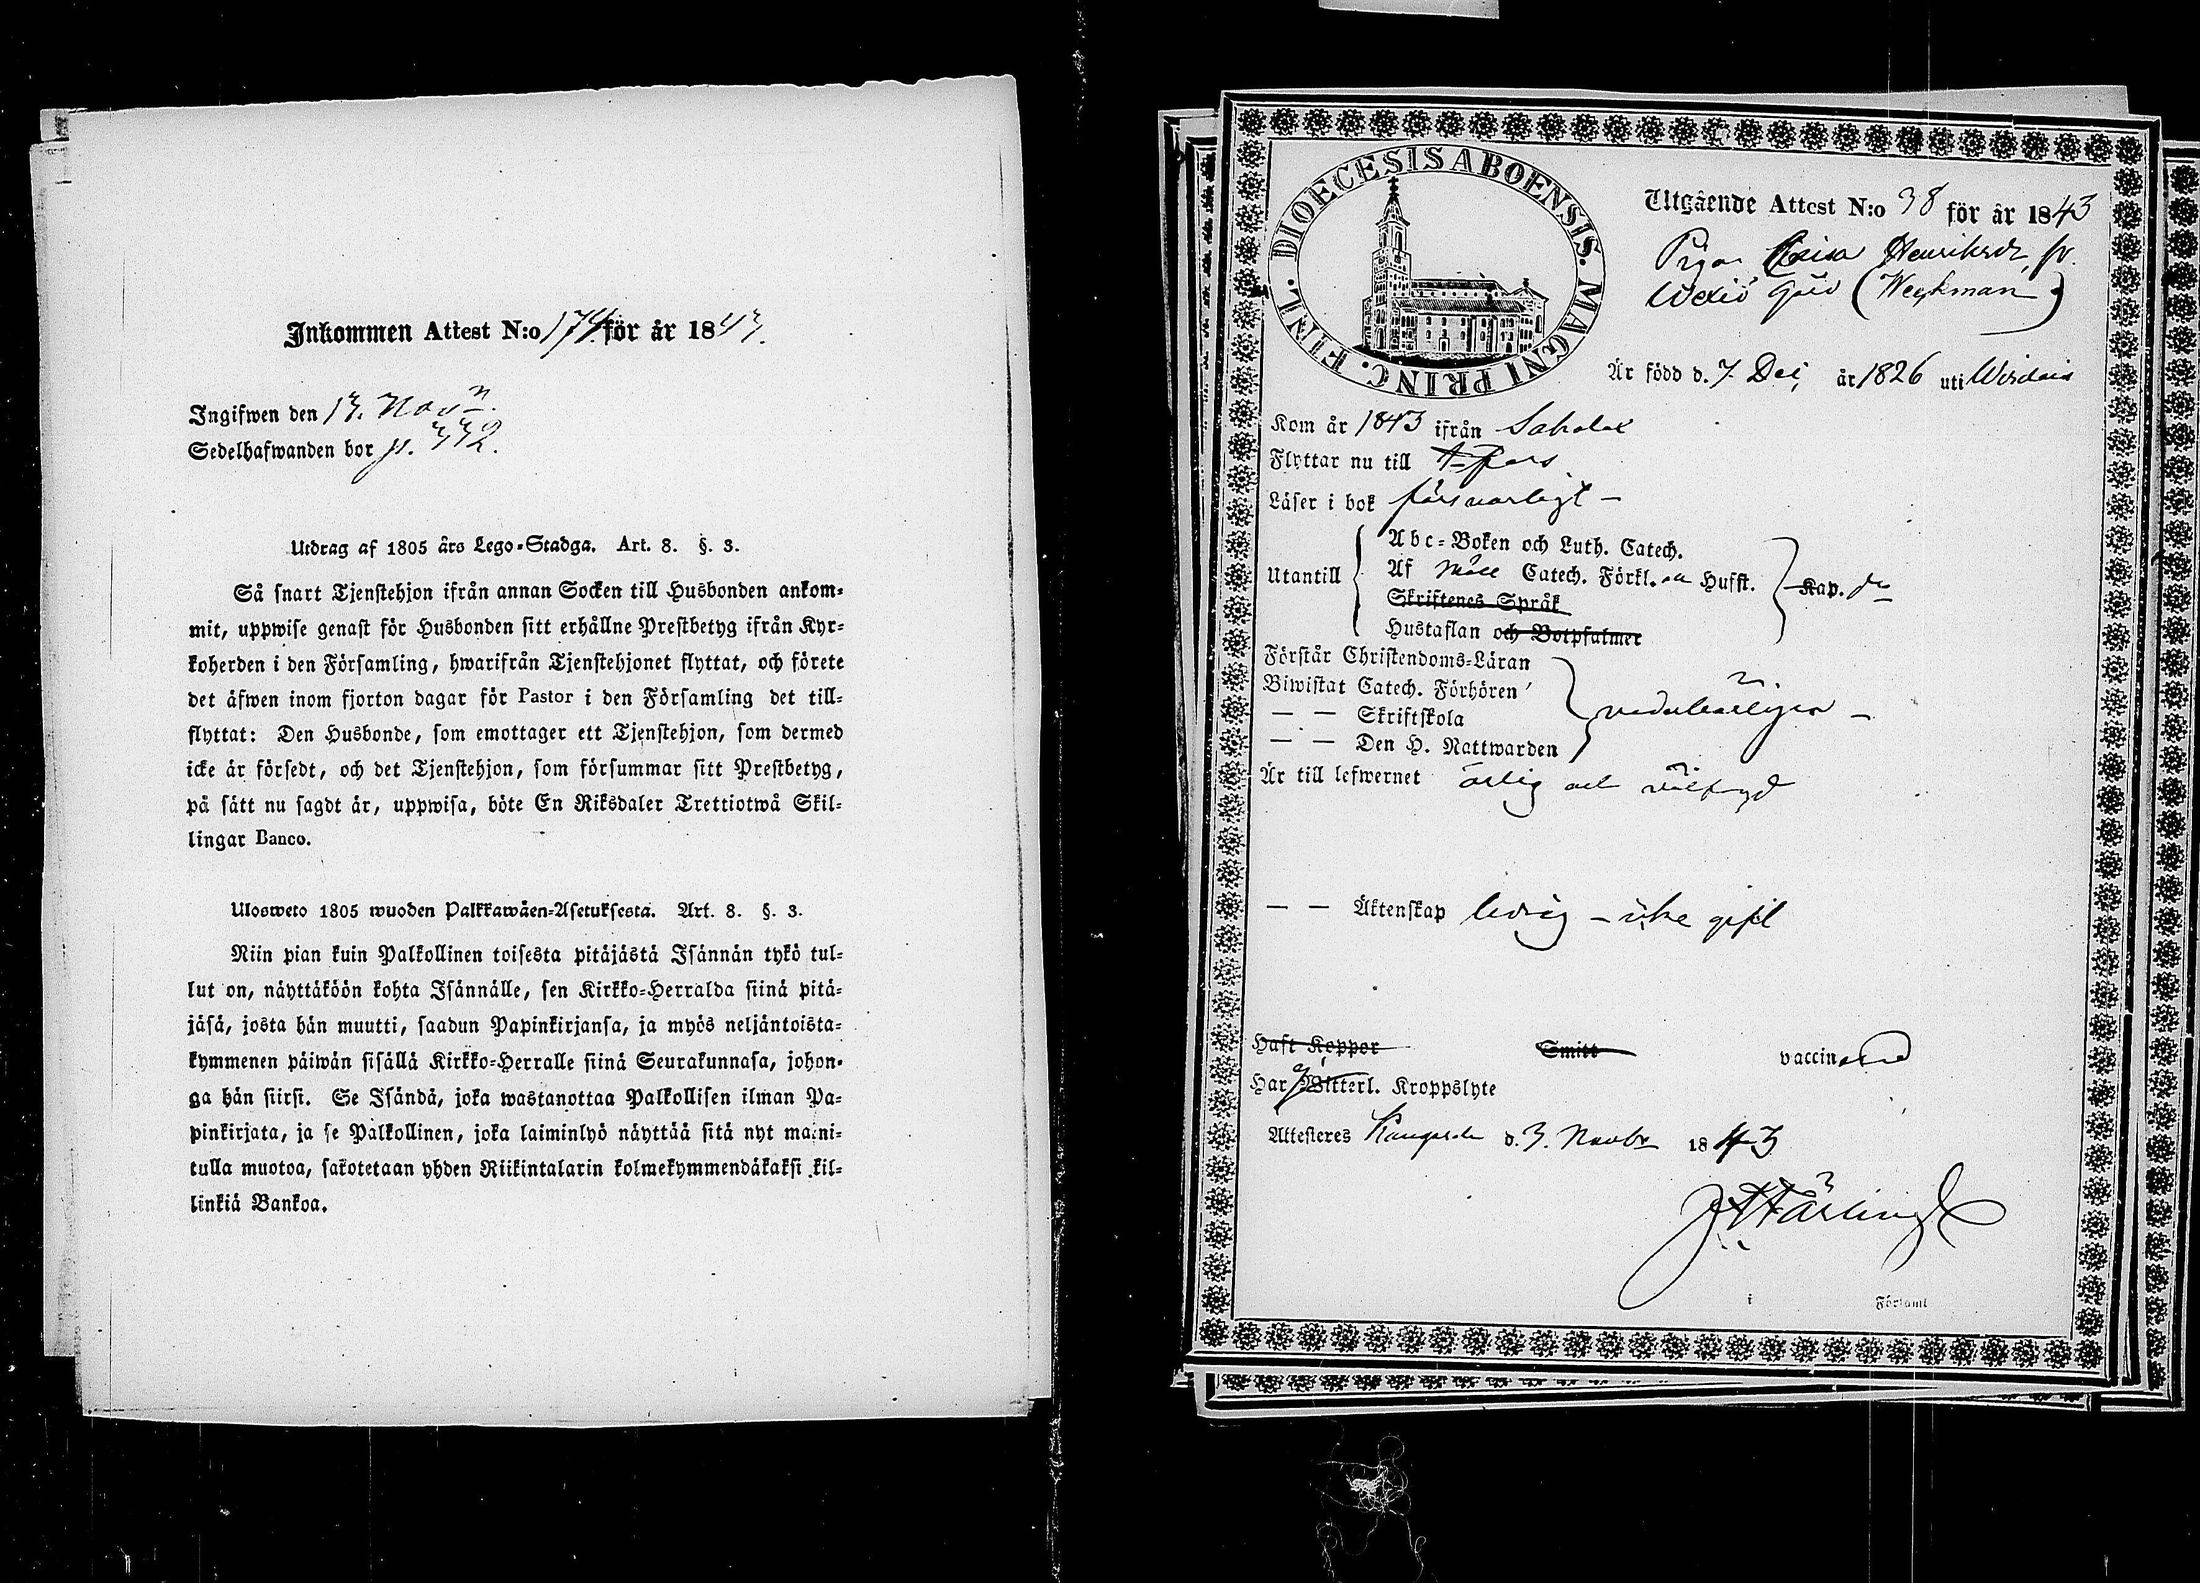 Inkommen Attest N:o 174 för år 1843.
Ingifwen den 13. Nov.
Sedelhafwanden bor p. 332.
Utdrag af 1805 års Lego-Stadga. Art. 8. §. 3.
Så snart Tjenstehjon ifrån annan Socken till Husbonden ankom-
mit, uppwise genast för Husbonden sitt erhållne Prestbetyg ifrån Kyr-
koherden i den Församling, hwarifrån Tjenstehjonet flyttat, och förete
det äfwen inom fjorton dagar för Pastor i den Församling det till-
flyttat: Den Husbonde, som emottager ett Tjenstehjon, som dermed
icke är försedt, och det Tjenstehjon, som försummar sitt Prestbetyg,
på sätt nu sagdt är, uppwisa, böte En Riksdaler Trettiotwå Skil-
lingar Banco.
Ulosweto 1805 wuoden Palkkawäen-Asetuksesta. Art. 8. §. 3.
Niin pian kuin Palkollinen toisesta pitäjästä Isännän tykö tul-
lut on, näyttäköön kohta Isännälle, sen Kirkko-Herralda siinä pitä-
jäsä, josta hän muutti, saadun Papinkirjansa, ja myös neljäntoista-
kymmenen päiwän sisällä Kirkko-Herralle siinä Seurakunnasa, johon-
ga hän siirsi. Se Isändä, joka wastanottaa Palkollisen ilman Pa-
pinkirjata, ja se Palkollinen, joka laiminlyö näyttää sitä nyt maini-
tulla muotoa, sakotetaan yhden Riikintalarin kolmekymmendäkaksi kil-
linkiä Bankoa.
DIOECESIS ABOENSIS. MAGNI PRINC. FINL.
Utgående Attest N:o 38 för år 1843
Pigan Henriksdr fr.
(Weykman)
Är född d. 7 Dec. år 1826 uti
Kom år 1843 ifrån Sahalax
Flyttar nu till T-fors
Läser i bok försvarligt -
Utantill
Abc-Boken och Luth. Catech.
Af Catech. Förkl. Husst. Kap.
Skriftenes Språk
Hustaflan och Botpsalmer
Förstår Christendoms-Läran
Biwistat Catech. Förhören
— — Skriftskola
— — Den H. Nattwarden
vederbörligen -
Är till lefwernet ärlig och välfrejd
— — Äktenskap ledig - icke gift
Haft Koppor Smitt vaccinerad
Har Witterl. Kroppslyte
Attesteres Kangasala d. 3. Novbr 1843
i Församl